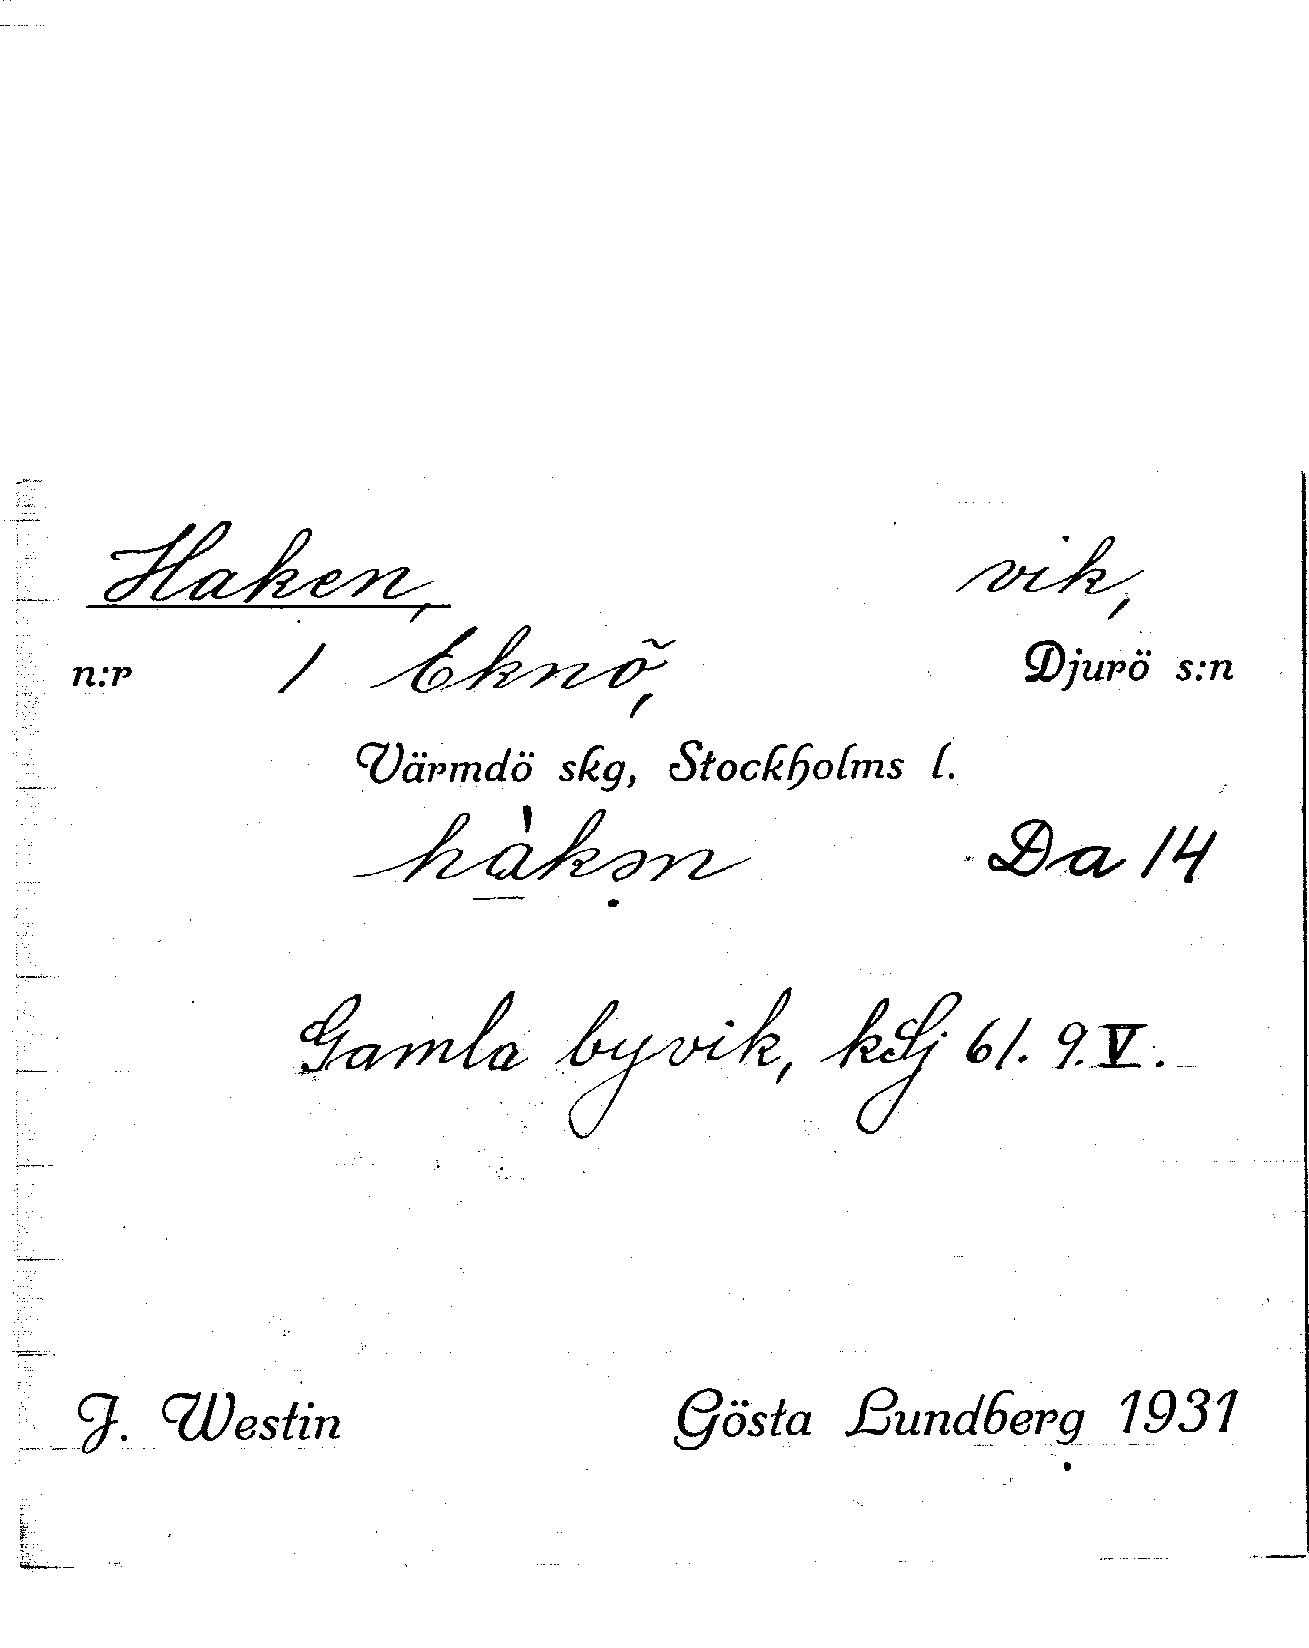 Haken, vik,
n:r 1 Eknö, Djurö s:n
Värmdö skg, Stockholms l.
hàkən Da 14
Gamla byvik, kLj 61. 9. V.
J. Westin Gösta Lundberg 1931